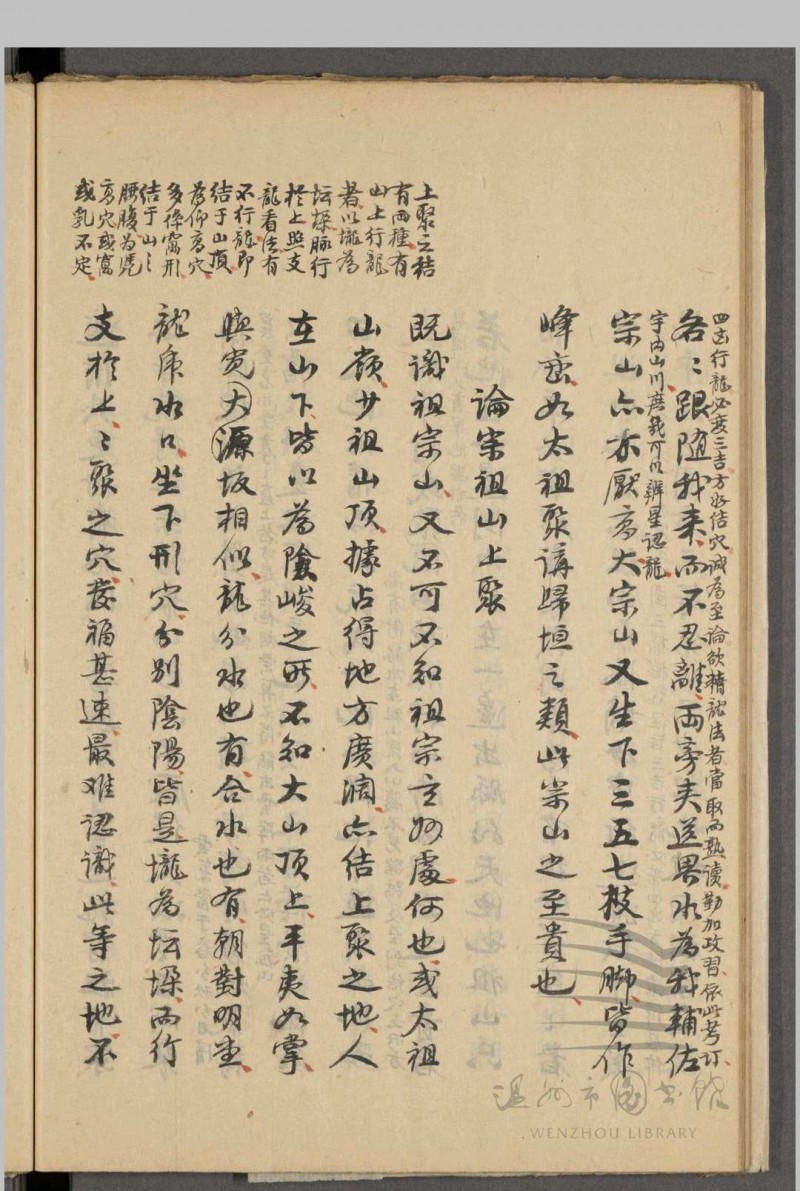 四面行龍必度三吉方好結穴誠為至論欲精龍法者當取而熟讀勤加政習依此考訂
各〻跟随我来而不忍離两旁夹送界水為我輔佐
宇内山川庶我可以辨星認龍
宗山点亦厭高大宗山又生下三五七枝手脚皆作
峰峦如太祖聚講歸垣之類此宗山之至貴也
論宗祖山上聚
既識祖宗山又不可不知祖宗玄妙處何也或太祖
山嶺少祖山頂據占得地方廣濶亦结上聚之地人
在山下皆以為險峻之所不知大山頂上平夷如掌
與宽大源坂相似龍分水也有合水也有朝對明堂
龍虎水口坐下形穴分别陰陽皆是壠為坛壜而行
支於上〻聚之穴发福甚速最难認識此等之地不
上聚之结
有两種有
山上行龍
者以壠為
坛壜脉行
於上與支
龍看法有
不行龍即
结于山頂
為仰高穴
多作窩形
结于山之
腰腹為凭
高穴或窩
或乳不定
温州市圖書館
WENZHOU LIBRARY